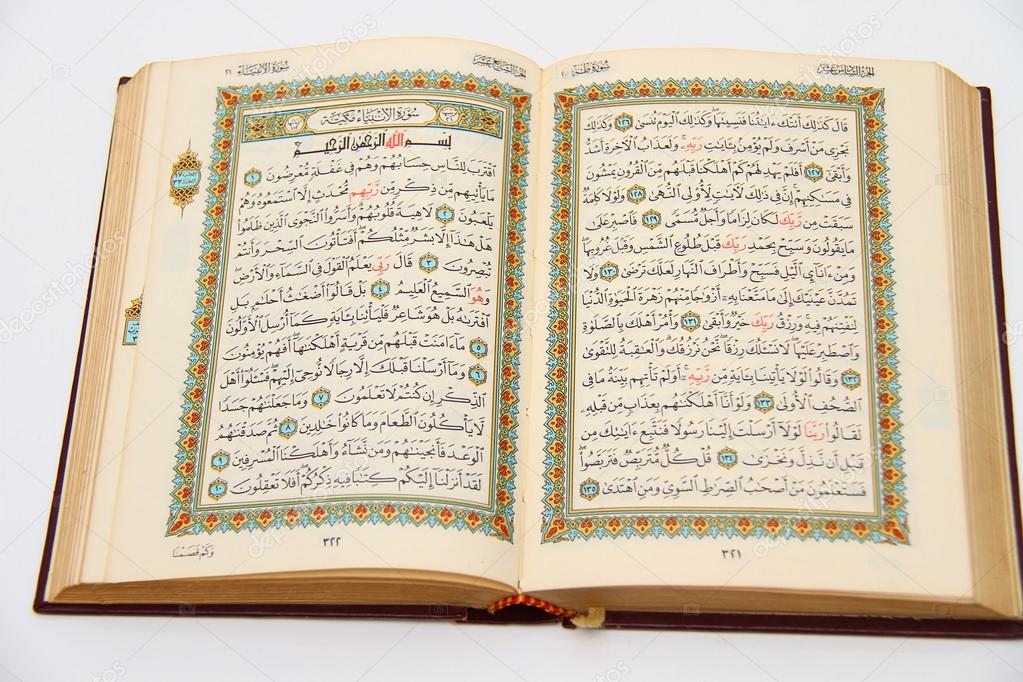 الجزء السادس عشر
سورة طه ٢٠
قَالَ كَذَٰلِكَ أَتَتْكَ ءَايَٰتُنَا فَنَسِيتَهَا وَكَذَٰلِكَ ٱلْيَوْمَ تُنسَىٰ ١٢٦ وَكَذَٰلِكَ
نَجْزِى مَنْ أَسْرَفَ وَلَمْ يُؤْمِنۢ بِـَٔايَٰتِ رَبِّهِۦ وَلَعَذَابُ ٱلْأَخِرَةِ أَشَدُّ
وَأَبْقَىٰٓ ١٢٧ أَفَلَمْ يَهْدِ لَهُمْ كَمْ أَهْلَكْنَا قَبْلَهُم مِّنَ ٱلْقُرُونِ يَمْشُونَ
فِى مَسَٰكِنِهِمْ إِنَّ فِى ذَٰلِكَ لَأَيَٰتٍ لِّأُو۟لِى ٱلنُّهَىٰ ١٢٨ وَلَوْلَا كَلِمَةٌ
سَبَقَتْ مِن رَّبِّكَ لَكَانَ لِزَامًا وَأَجَلٌ مُّسَمًّى ١٢٩ فَٱصْبِرْ عَلَىٰ
مَا يَقُولُونَ وَسَبِّحْ بِحَمْدِ رَبِّكَ قَبْلَ طُلُوعِ ٱلشَّمْسِ وَقَبْلَ غُرُوبِهَا
وَمِنْ ءَانَآئِ ٱلَّيْلِ فَسَبِّحْ وَأَطْرَافَ ٱلنَّهَارِ لَعَلَّكَ تَرْضَىٰ ١٣٠ وَلَا
تَمُدَّنَّ عَيْنَيْكَ إِلَىٰ مَا مَتَّعْنَا بِهِۦٓ أَزْوَٰجًا مِّنْهُمْ زَهْرَةَ ٱلْحَيَوٰةِ ٱلدُّنْيَا
لِنَفْتِنَهُمْ فِيهِ وَرِزْقُ رَبِّكَ خَيْرٌ وَأَبْقَىٰ ١٣١ وَأْمُرْ أَهْلَكَ بِٱلصَّلَوٰةِ
وَٱصْطَبِرْ عَلَيْهَا لَا نَسْـَٔلُكَ رِزْقًا نَّحْنُ نَرْزُقُكَ وَٱلْعَٰقِبَةُ لِلتَّقْوَىٰ
١٣٢ وَقَالُوا۟ لَوْلَا يَأْتِينَا بِـَٔايَةٍ مِّن رَّبِّهِۦٓ أَوَلَمْ تَأْتِهِم بَيِّنَةُ مَا فِى
ٱلصُّحُفِ ٱلْأُولَىٰ ١٣٣ وَلَوْ أَنَّآ أَهْلَكْنَٰهُم بِعَذَابٍ مِّن قَبْلِهِۦ
لَقَالُوا۟ رَبَّنَا لَوْلَآ أَرْسَلْتَ إِلَيْنَا رَسُولًا فَنَتَّبِعَ ءَايَٰتِكَ مِن
قَبْلِ أَن نَّذِلَّ وَنَخْزَىٰ ١٣٤ قُلْ كُلٌّ مُّتَرَبِّصٌ فَتَرَبَّصُوا۟
فَسَتَعْلَمُونَ مَنْ أَصْحَٰبُ ٱلصِّرَٰطِ ٱلسَّوِىِّ وَمَنِ ٱهْتَدَىٰ ١٣٥
٣٢١
الجزء السابع عشر
سورة الأنبياء ٢١
سُورَةُ الأنبِيَاء مَكيَّة
بِسْمِ ٱللَّهِ ٱلرَّحْمَٰنِ ٱلرَّحِيمِ
ٱقْتَرَبَ لِلنَّاسِ حِسَابُهُمْ وَهُمْ فِى غَفْلَةٍ مُّعْرِضُونَ ١
مَا يَأْتِيهِم مِّن ذِكْرٍ مِّن رَّبِّهِم مُّحْدَثٍ إِلَّا ٱسْتَمَعُوهُ وَهُمْ
يَلْعَبُونَ ٢ لَاهِيَةً قُلُوبُهُمْ وَأَسَرُّوا۟ ٱلنَّجْوَى ٱلَّذِينَ ظَلَمُوا۟
هَلْ هَٰذَآ إِلَّا بَشَرٌ مِّثْلُكُمْ أَفَتَأْتُونَ ٱلسِّحْرَ وَأَنتُمْ
تُبْصِرُونَ ٣ قَالَ رَبِّى يَعْلَمُ ٱلْقَوْلَ فِى ٱلسَّمَآءِ وَٱلْأَرْضِ
وَهُوَ ٱلسَّمِيعُ ٱلْعَلِيمُ ٤ بَلْ قَالُوٓا۟ أَضْغَٰثُ أَحْلَٰمٍ بَلِ
ٱفْتَرَىٰهُ بَلْ هُوَ شَاعِرٌ فَلْيَأْتِنَا بِـَٔايَةٍ كَمَآ أُرْسِلَ ٱلْأَوَّلُونَ
٥ مَآ ءَامَنَتْ قَبْلَهُم مِّن قَرْيَةٍ أَهْلَكْنَٰهَآ أَفَهُمْ يُؤْمِنُونَ
٦ وَمَآ أَرْسَلْنَا قَبْلَكَ إِلَّا رِجَالًا نُّوحِىٓ إِلَيْهِمْ فَسْـَٔلُوٓا۟ أَهْلَ
ٱلذِّكْرِ إِن كُنتُمْ لَا تَعْلَمُونَ ٧ وَمَا جَعَلْنَٰهُمْ جَسَدًا
لَّا يَأْكُلُونَ ٱلطَّعَامَ وَمَا كَانُوا۟ خَٰلِدِينَ ٨ ثُمَّ صَدَقْنَٰهُمُ
ٱلْوَعْدَ فَأَنجَيْنَٰهُمْ وَمَن نَّشَآءُ وَأَهْلَكْنَا ٱلْمُسْرِفِينَ ٩
لَقَدْ أَنزَلْنَآ إِلَيْكُمْ كِتَٰبًا فِيهِ ذِكْرُكُمْ أَفَلَا تَعْقِلُونَ ١٠
٣٢٢
وَكَمْ قَصَمْنَا
depositphotos